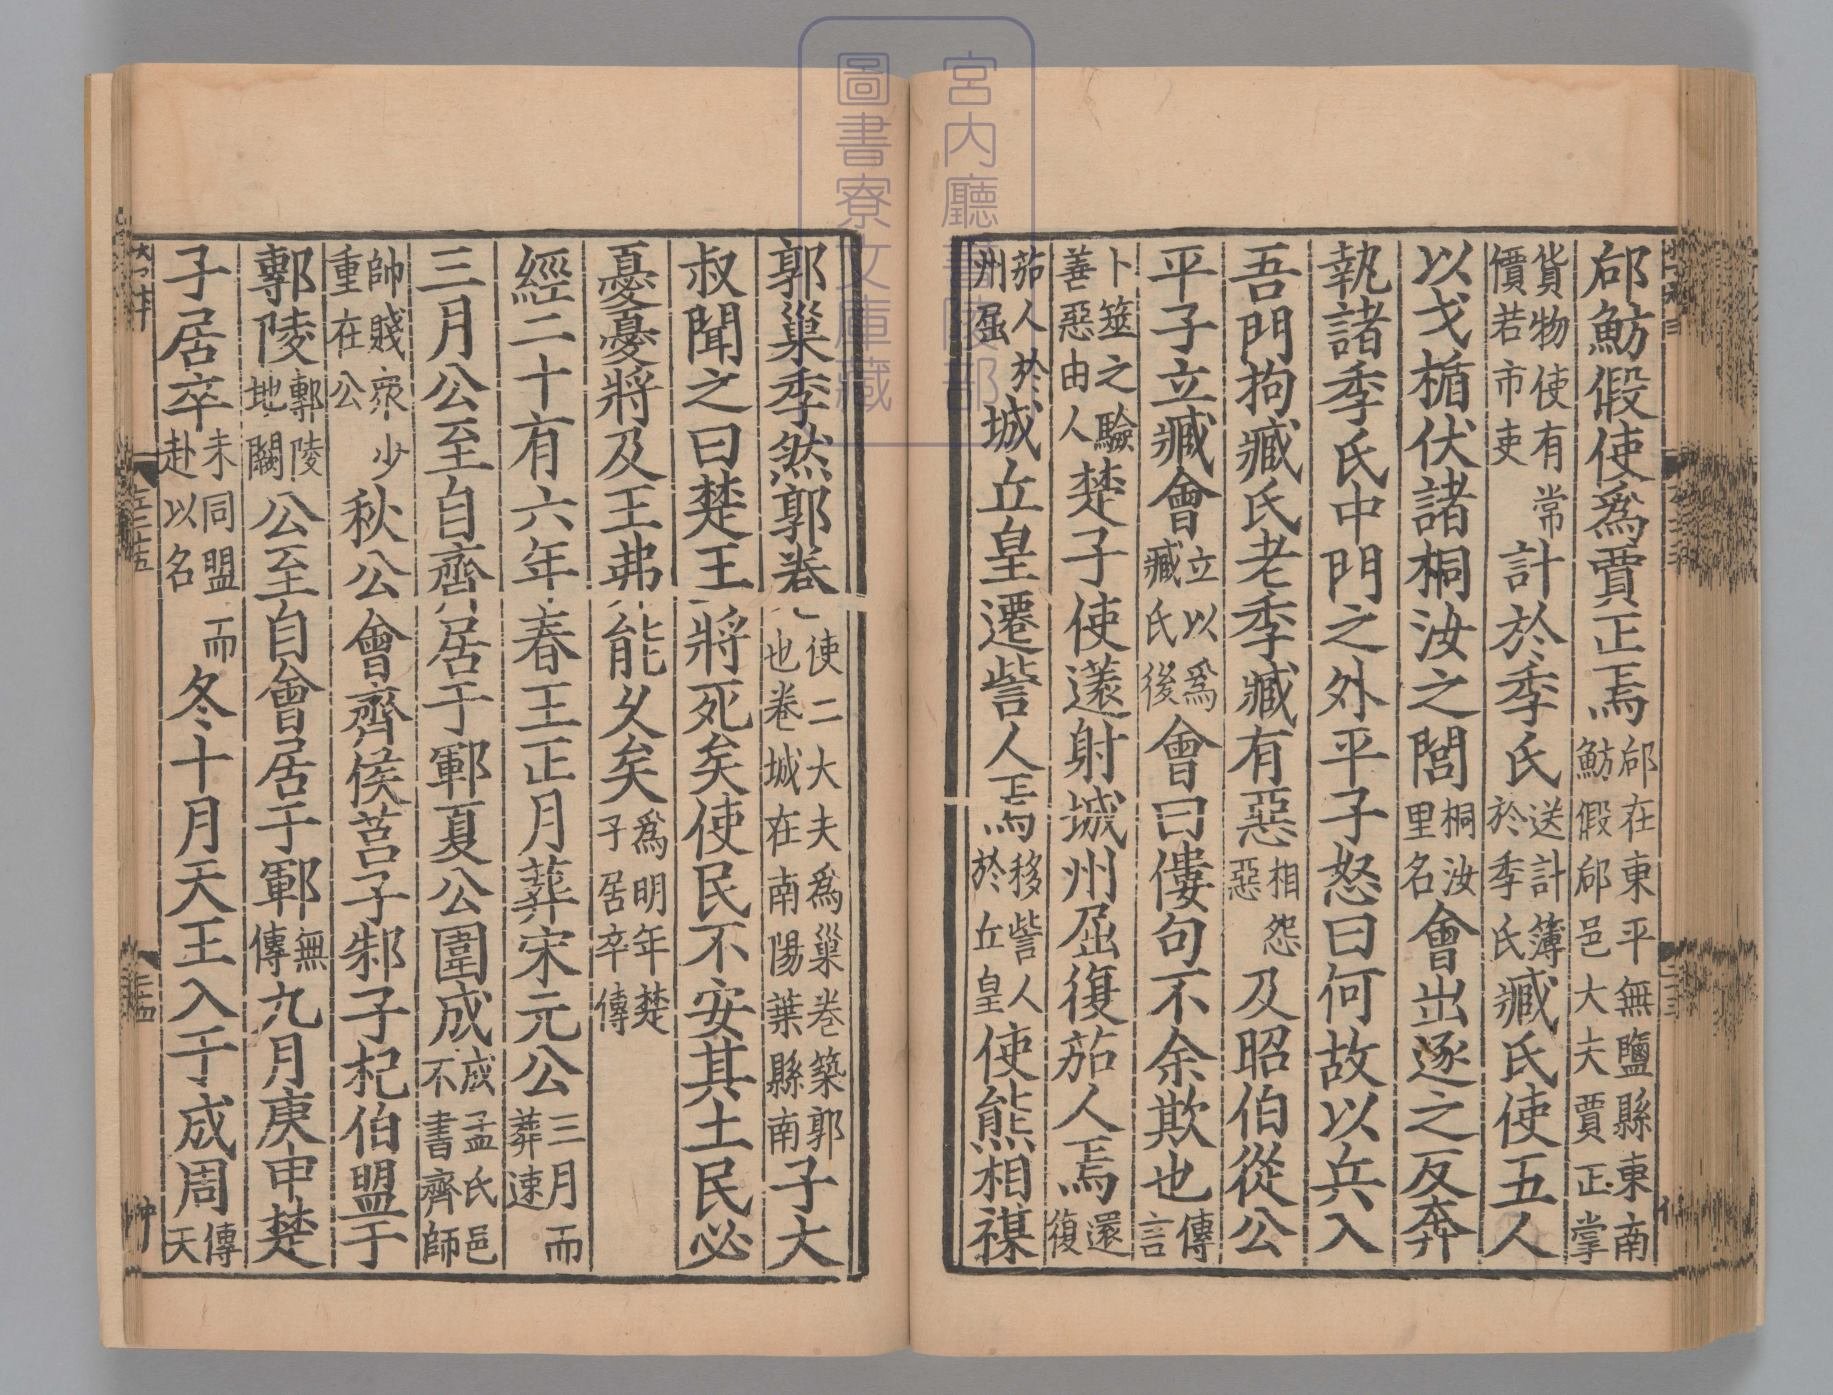 郈魴假使爲賈正焉郈在東平無鹽縣東南魴假郈邑大夫賈正掌
貨物使有常價若市吏計於季氏送計簿於季氏臧氏使五人
以戈楯伏諸桐汝之閭桐汝里名會出逐之反奔
執諸季氏中門之外平子怒曰何故以兵入
吾門拘臧氏老季臧有惡相怨惡及昭伯從公
平子立臧會立以爲臧氏後會曰僂句不余欺也傳言
卜筮之驗善惡由人楚子使薳射城州屈復茄人焉還復
茄人於州屈城丘皇遷訾人焉移訾人於丘皇使熊相禖
郭巢季然郭卷使二大夫爲巢卷築郭也卷城在南陽葉縣南子大
叔聞之曰楚王將死矣使民不安其土民必
憂憂將及王弗能久矣爲明年楚子居卒傳
經二十有六年春王正月葬宋元公三月而葬速
三月公至自齊居于鄆夏公圍成成孟氏邑不書齊師
帥賤衆少重在公秋公會齊侯莒子邾子杞伯盟于
鄟陵鄟陵地闕公至自會居于鄆無傳九月庚申楚
子居卒未同盟而赴以名冬十月天王入于成周傳天
宮内廳書陵部
圖書寮文庫藏